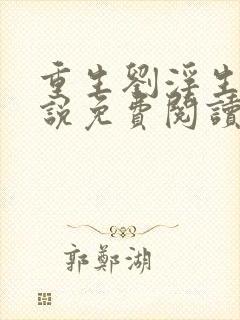 重生劉淫生
說免費閱讀
郭鄭湖